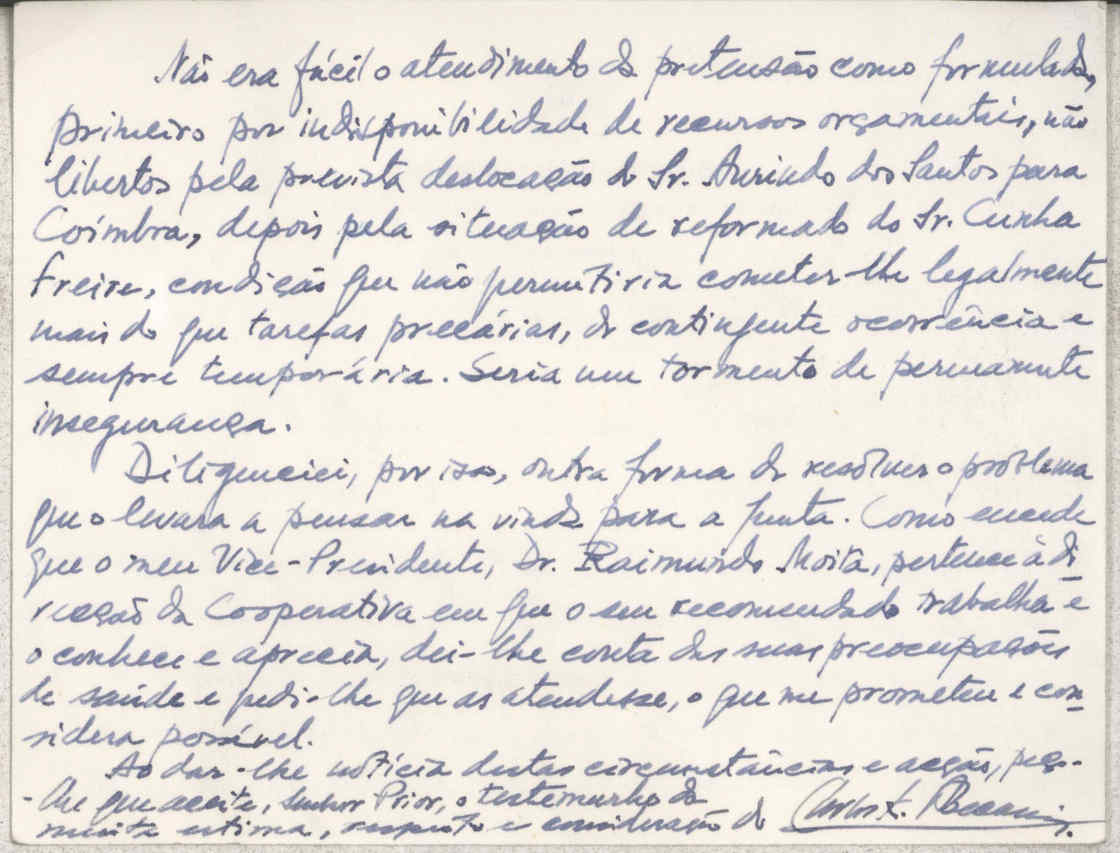 Não era fácil o atendimento da pretensão como formulada,
primeiro por indisponibilidade de recursos orçamentais, não
libertos pela prevista deslocação do Sr. Aurindo dos Santos para
Coimbra, depois pela situação de reformado do Sr. Cunha
Freire, condição que não permitiria cometer-lhe legalmente
mais do que tarefas precárias, de contingente ocorrência e
sempre temporária. Seria um tormento de permanente
insegurança.
Diligenciei, por isso, outra forma de resolver o problema
que o levara a pensar na vinda para a Junta. Como sucede
que o meu Vice-Presidente, Dr. Raimundo Moita, pertence à di-
recção da Cooperativa em que o seu recomendado trabalha e
o conhece e aprecia, dei-lhe conta das suas preocupações
de saúde e pedi-lhe que as atendesse, o que me prometeu e con-
sidera possível.
Ao dar-lhe notícia destas circunstâncias e acção, peço-
-lhe que aceite, Senhor Prior, o testemunho da
muita estima, respeito e consideração do Carlos